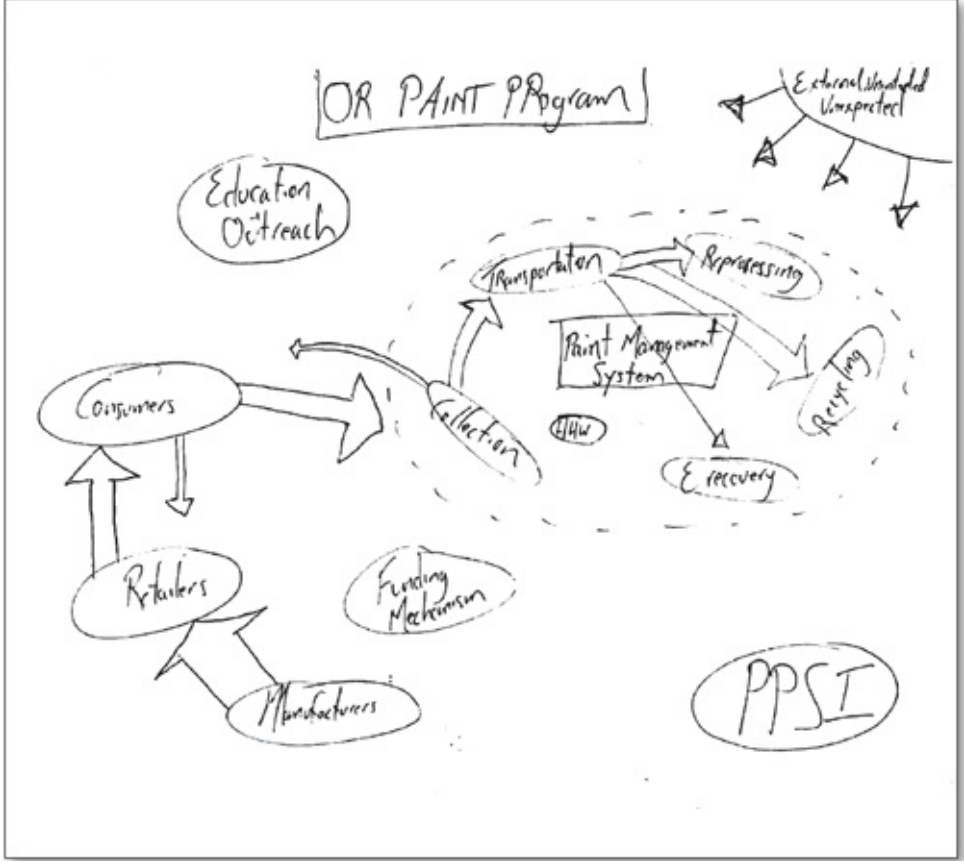 OR PAINT PROgram
External, Unintended
Unexpected
Education
Outreach
Transportation
Reprocessing
Paint Management
System
Recycling
Consumers
Collection
HHW
E recovery
Retailers
Funding
Mechanism
Manufacturers
PPSI